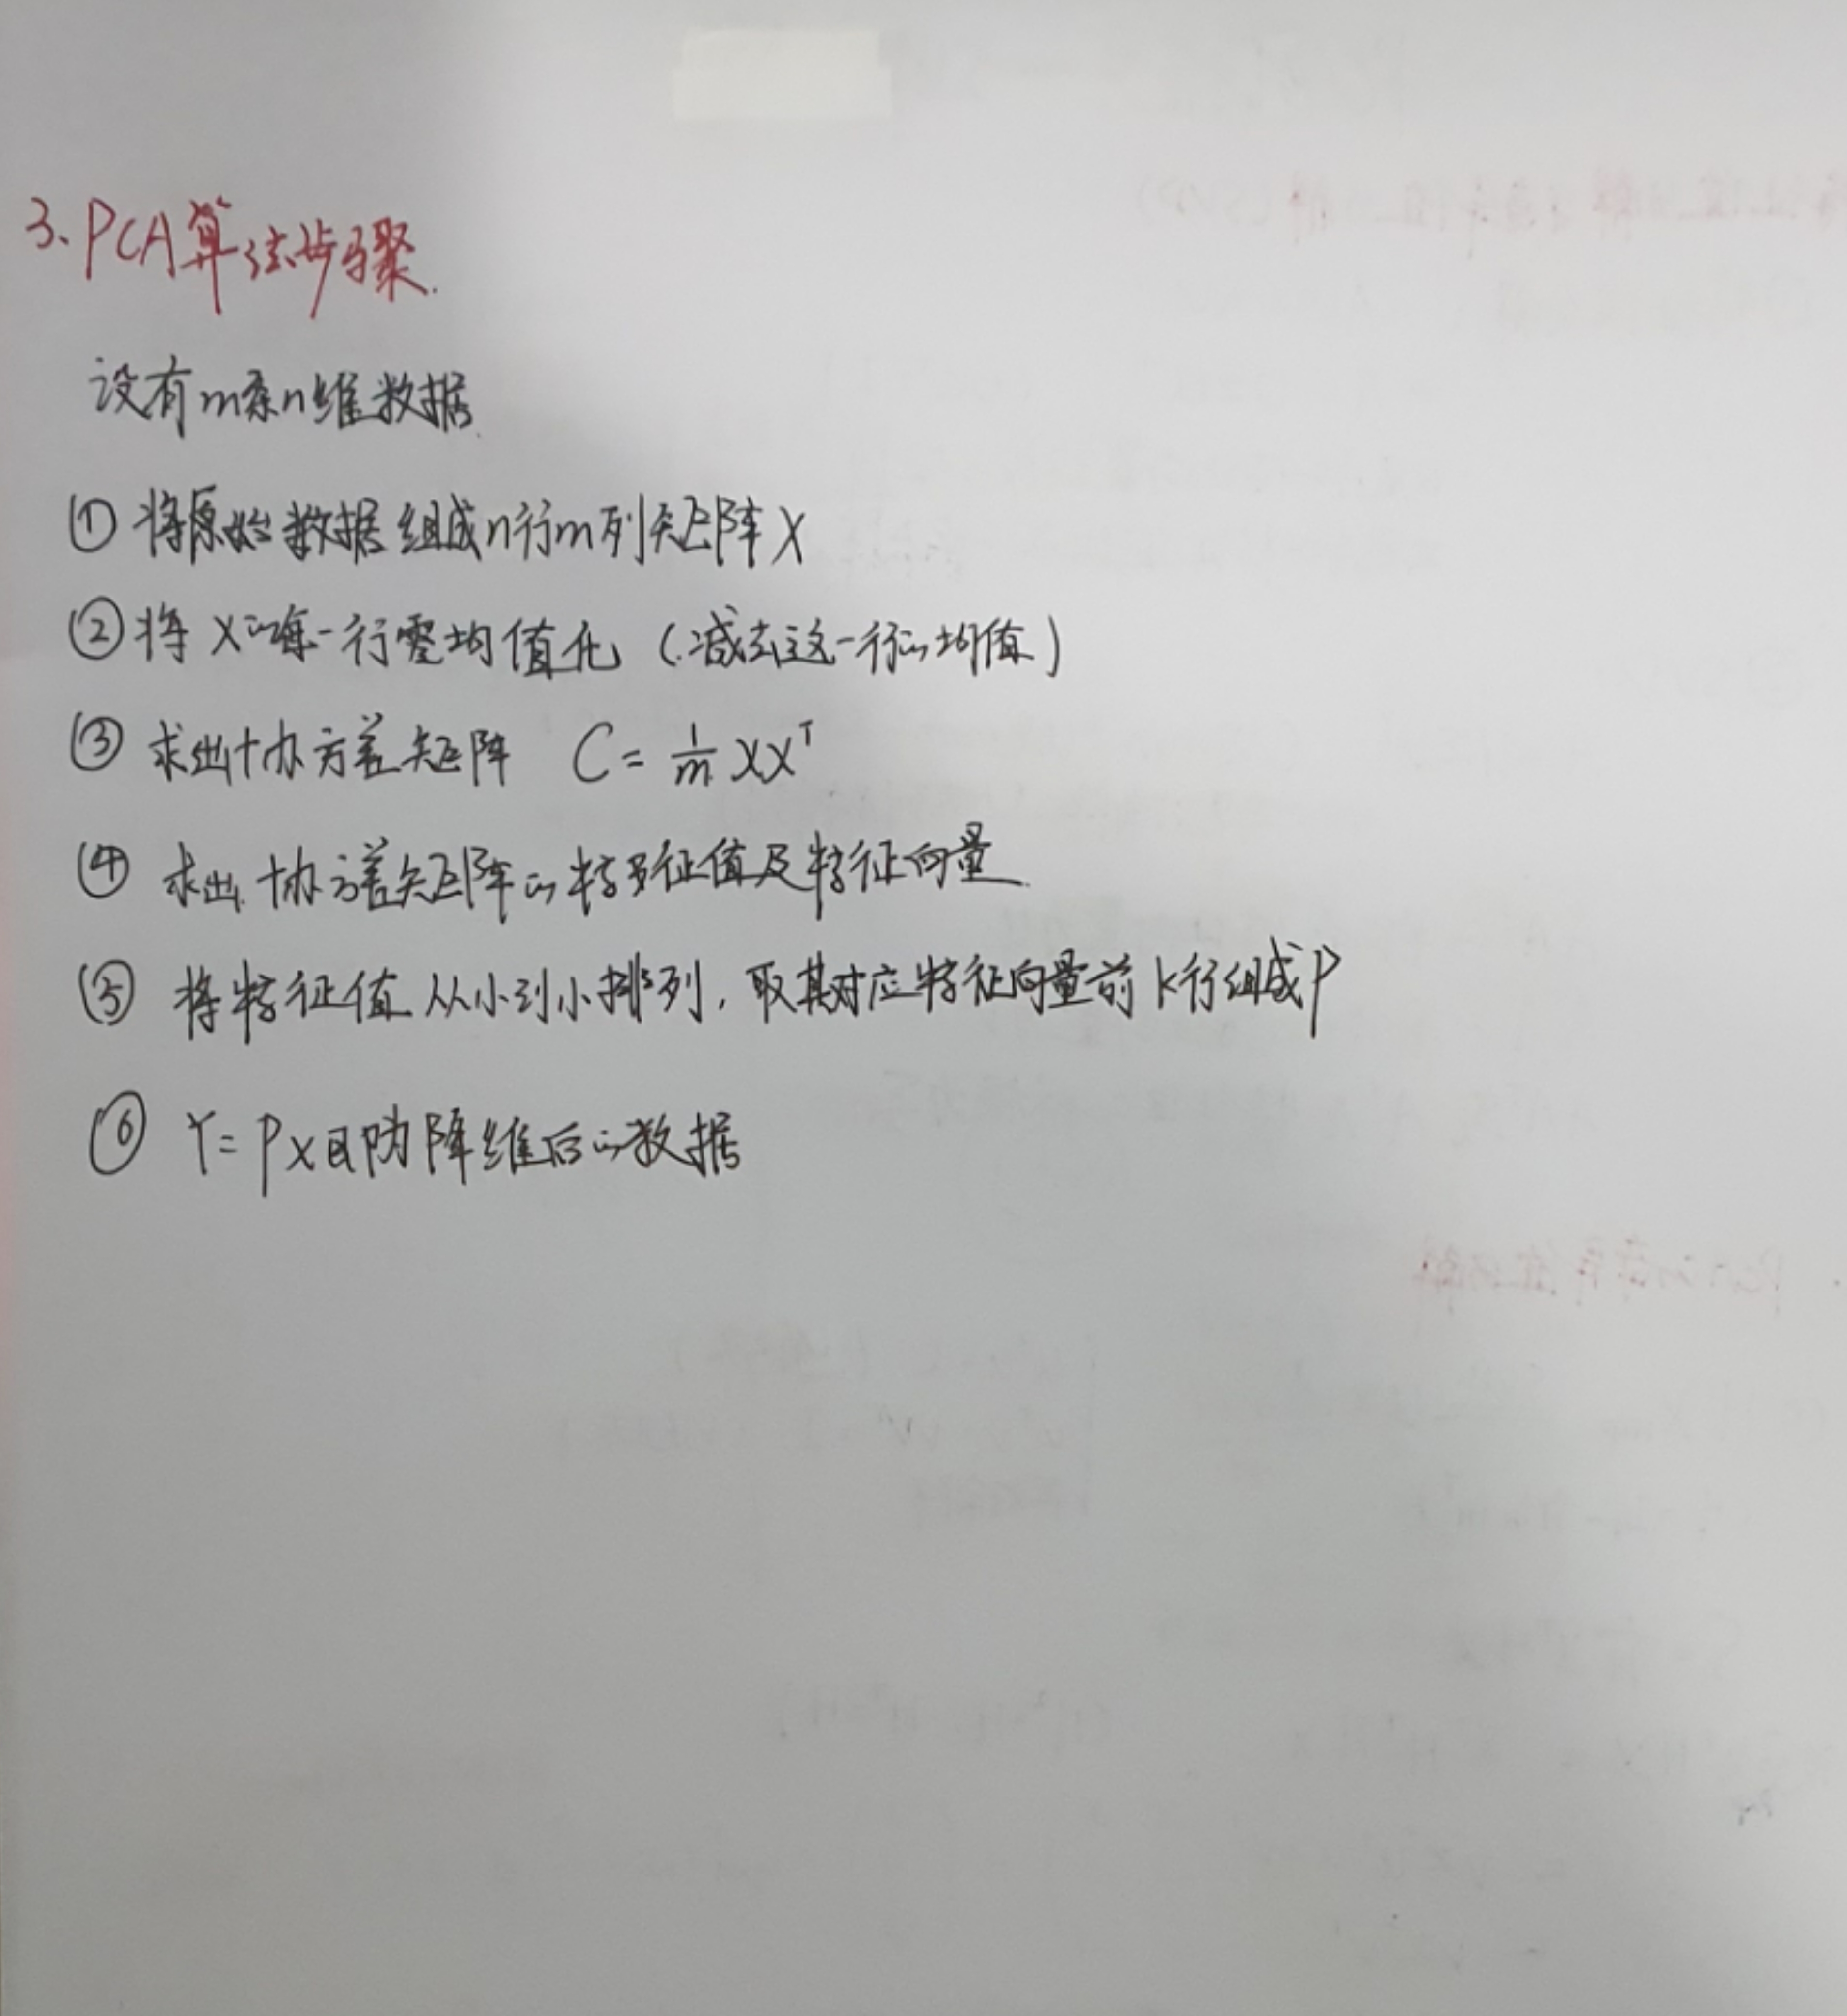 3、PCA算法步骤.
设有m条n维数据.
① 将原始数据组成n行m列矩阵X
② 将X的每一行零均值化（减去这一行的均值）
③ 求出协方差矩阵 C = 1/m XXᵀ
④ 求出协方差矩阵的特征值及特征向量.
⑤ 将特征值从小到小排列，取其对应特征向量前k行组成P
⑥ Y = PX即为降维后的数据